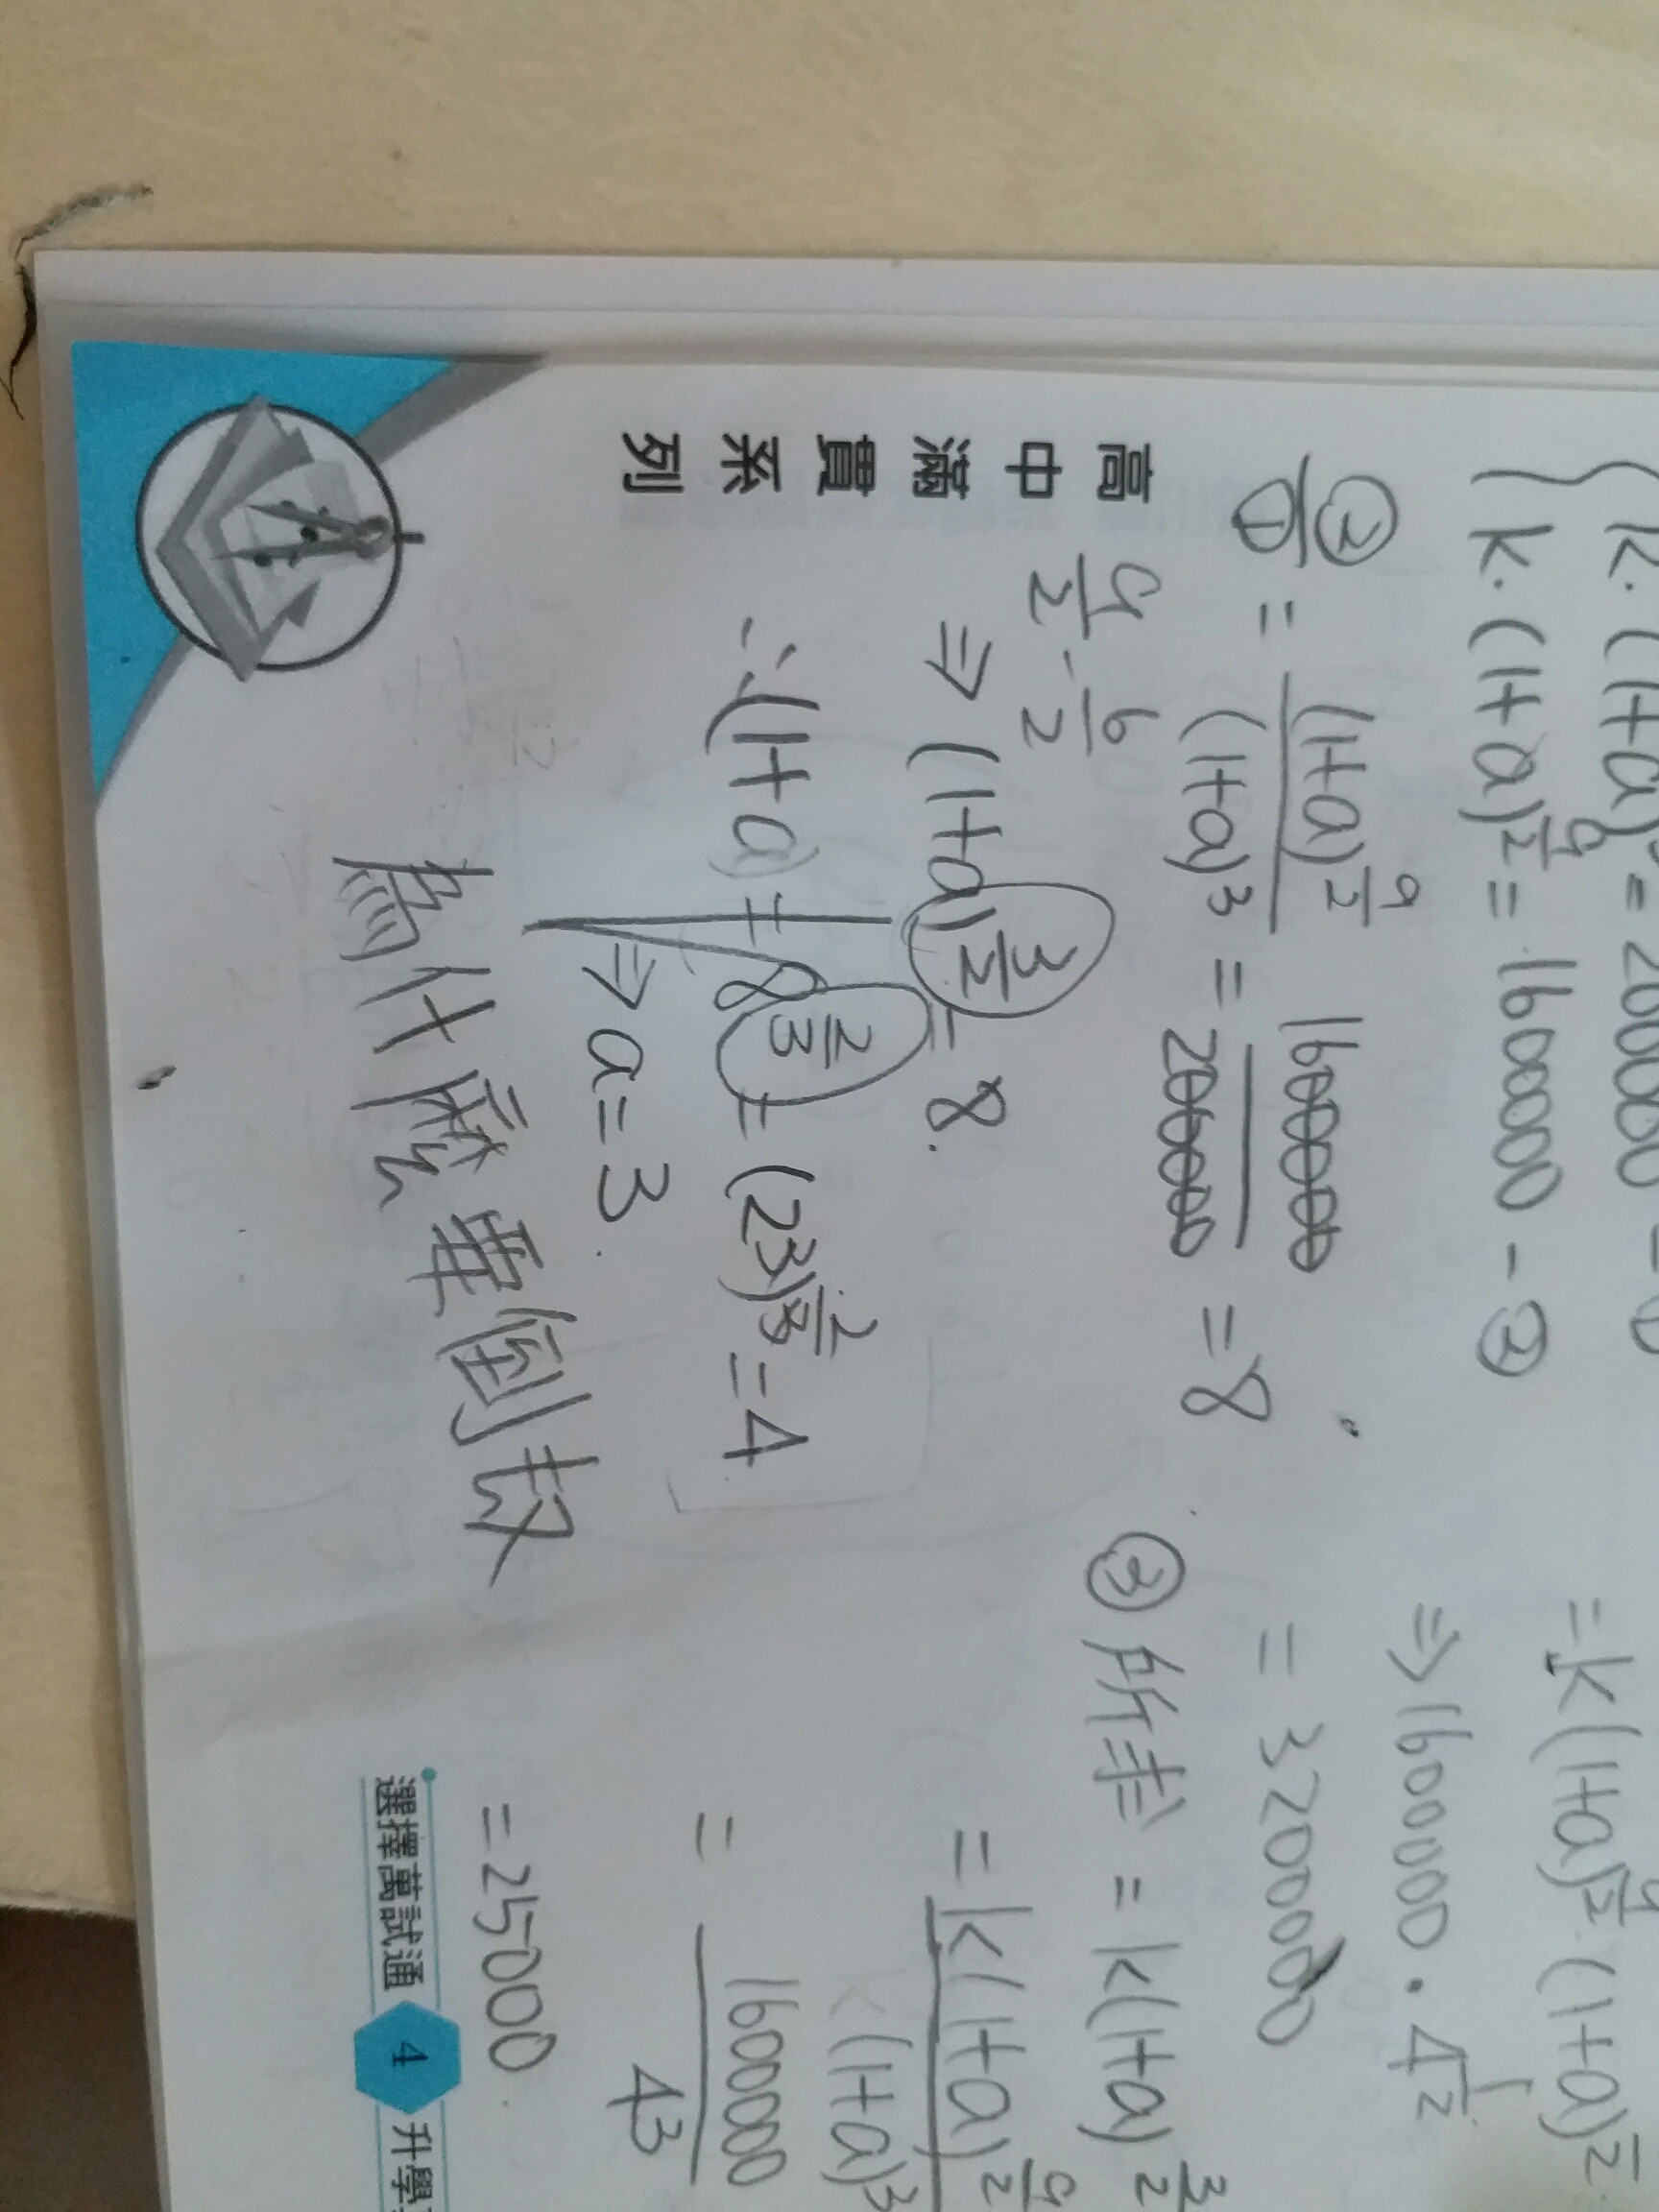 k·(1+a)³ = 200000 - ①
k·(1+a)^(9/2) = 1600000 - ②
②/① = (1+a)^(9/2) / (1+a)³ = 1600000 / 200000 = 8
9/2 - 6/2
⇒ (1+a)^(3/2) = 8.
∴ (1+a) = 8^(2/3) = (2³)^(2/3) = 4
⇒ a = 3.
為什麼要倒數
= k(1+a)^(9/2)·(1+a)^(1/2)
⇒ 1600000·4^(1/2)
= 3200000
③ 所求 = k(1+a)^(3/2)
= k(1+a)^(9/2) / k(1+a)³
= 1600000 / 4³
= 25000.
高中滿貫系列
選擇萬試通 4 升學